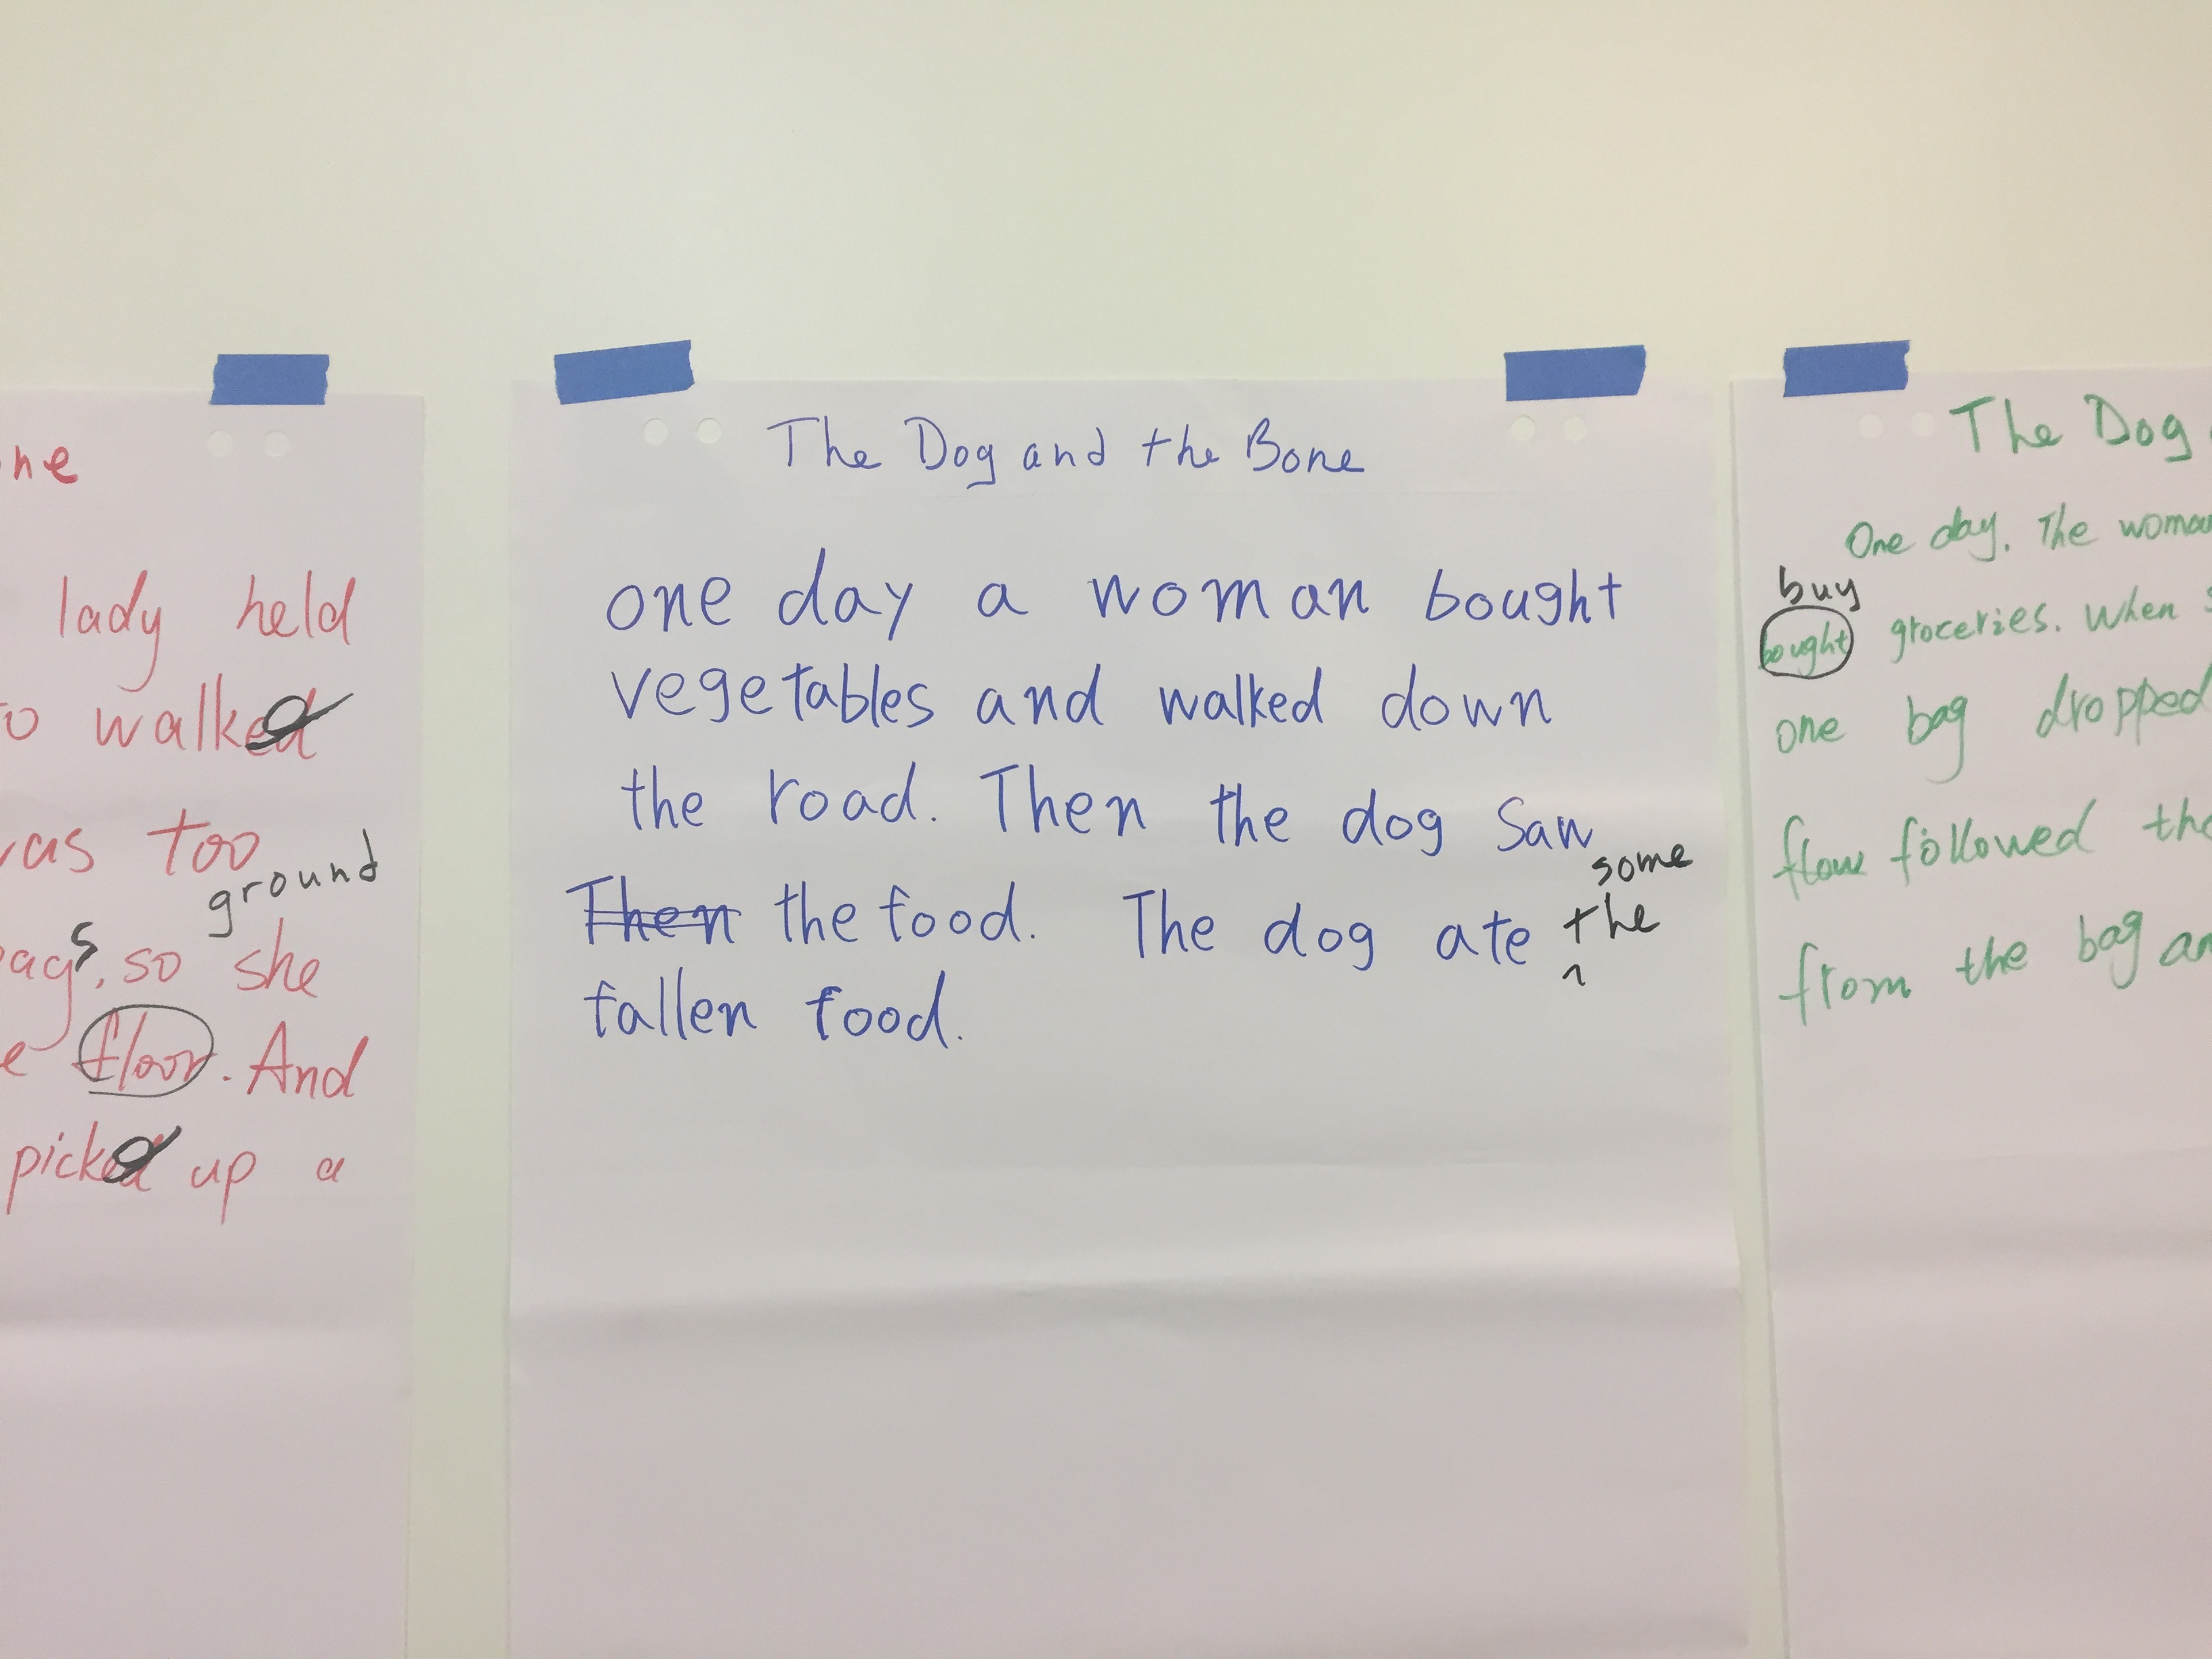 ne
lady held
to walked
was too
ground
bags, so she
e floor. And
picked up a
The Dog and the Bone
one day a woman bought
vegetables and walked down
the road. Then the dog saw
some
Then the food. The dog ate the
fallen food.
The Dog
One day. The woman
buy
bought groceries. When s
one bag dropped
flow followed the
from the bag an